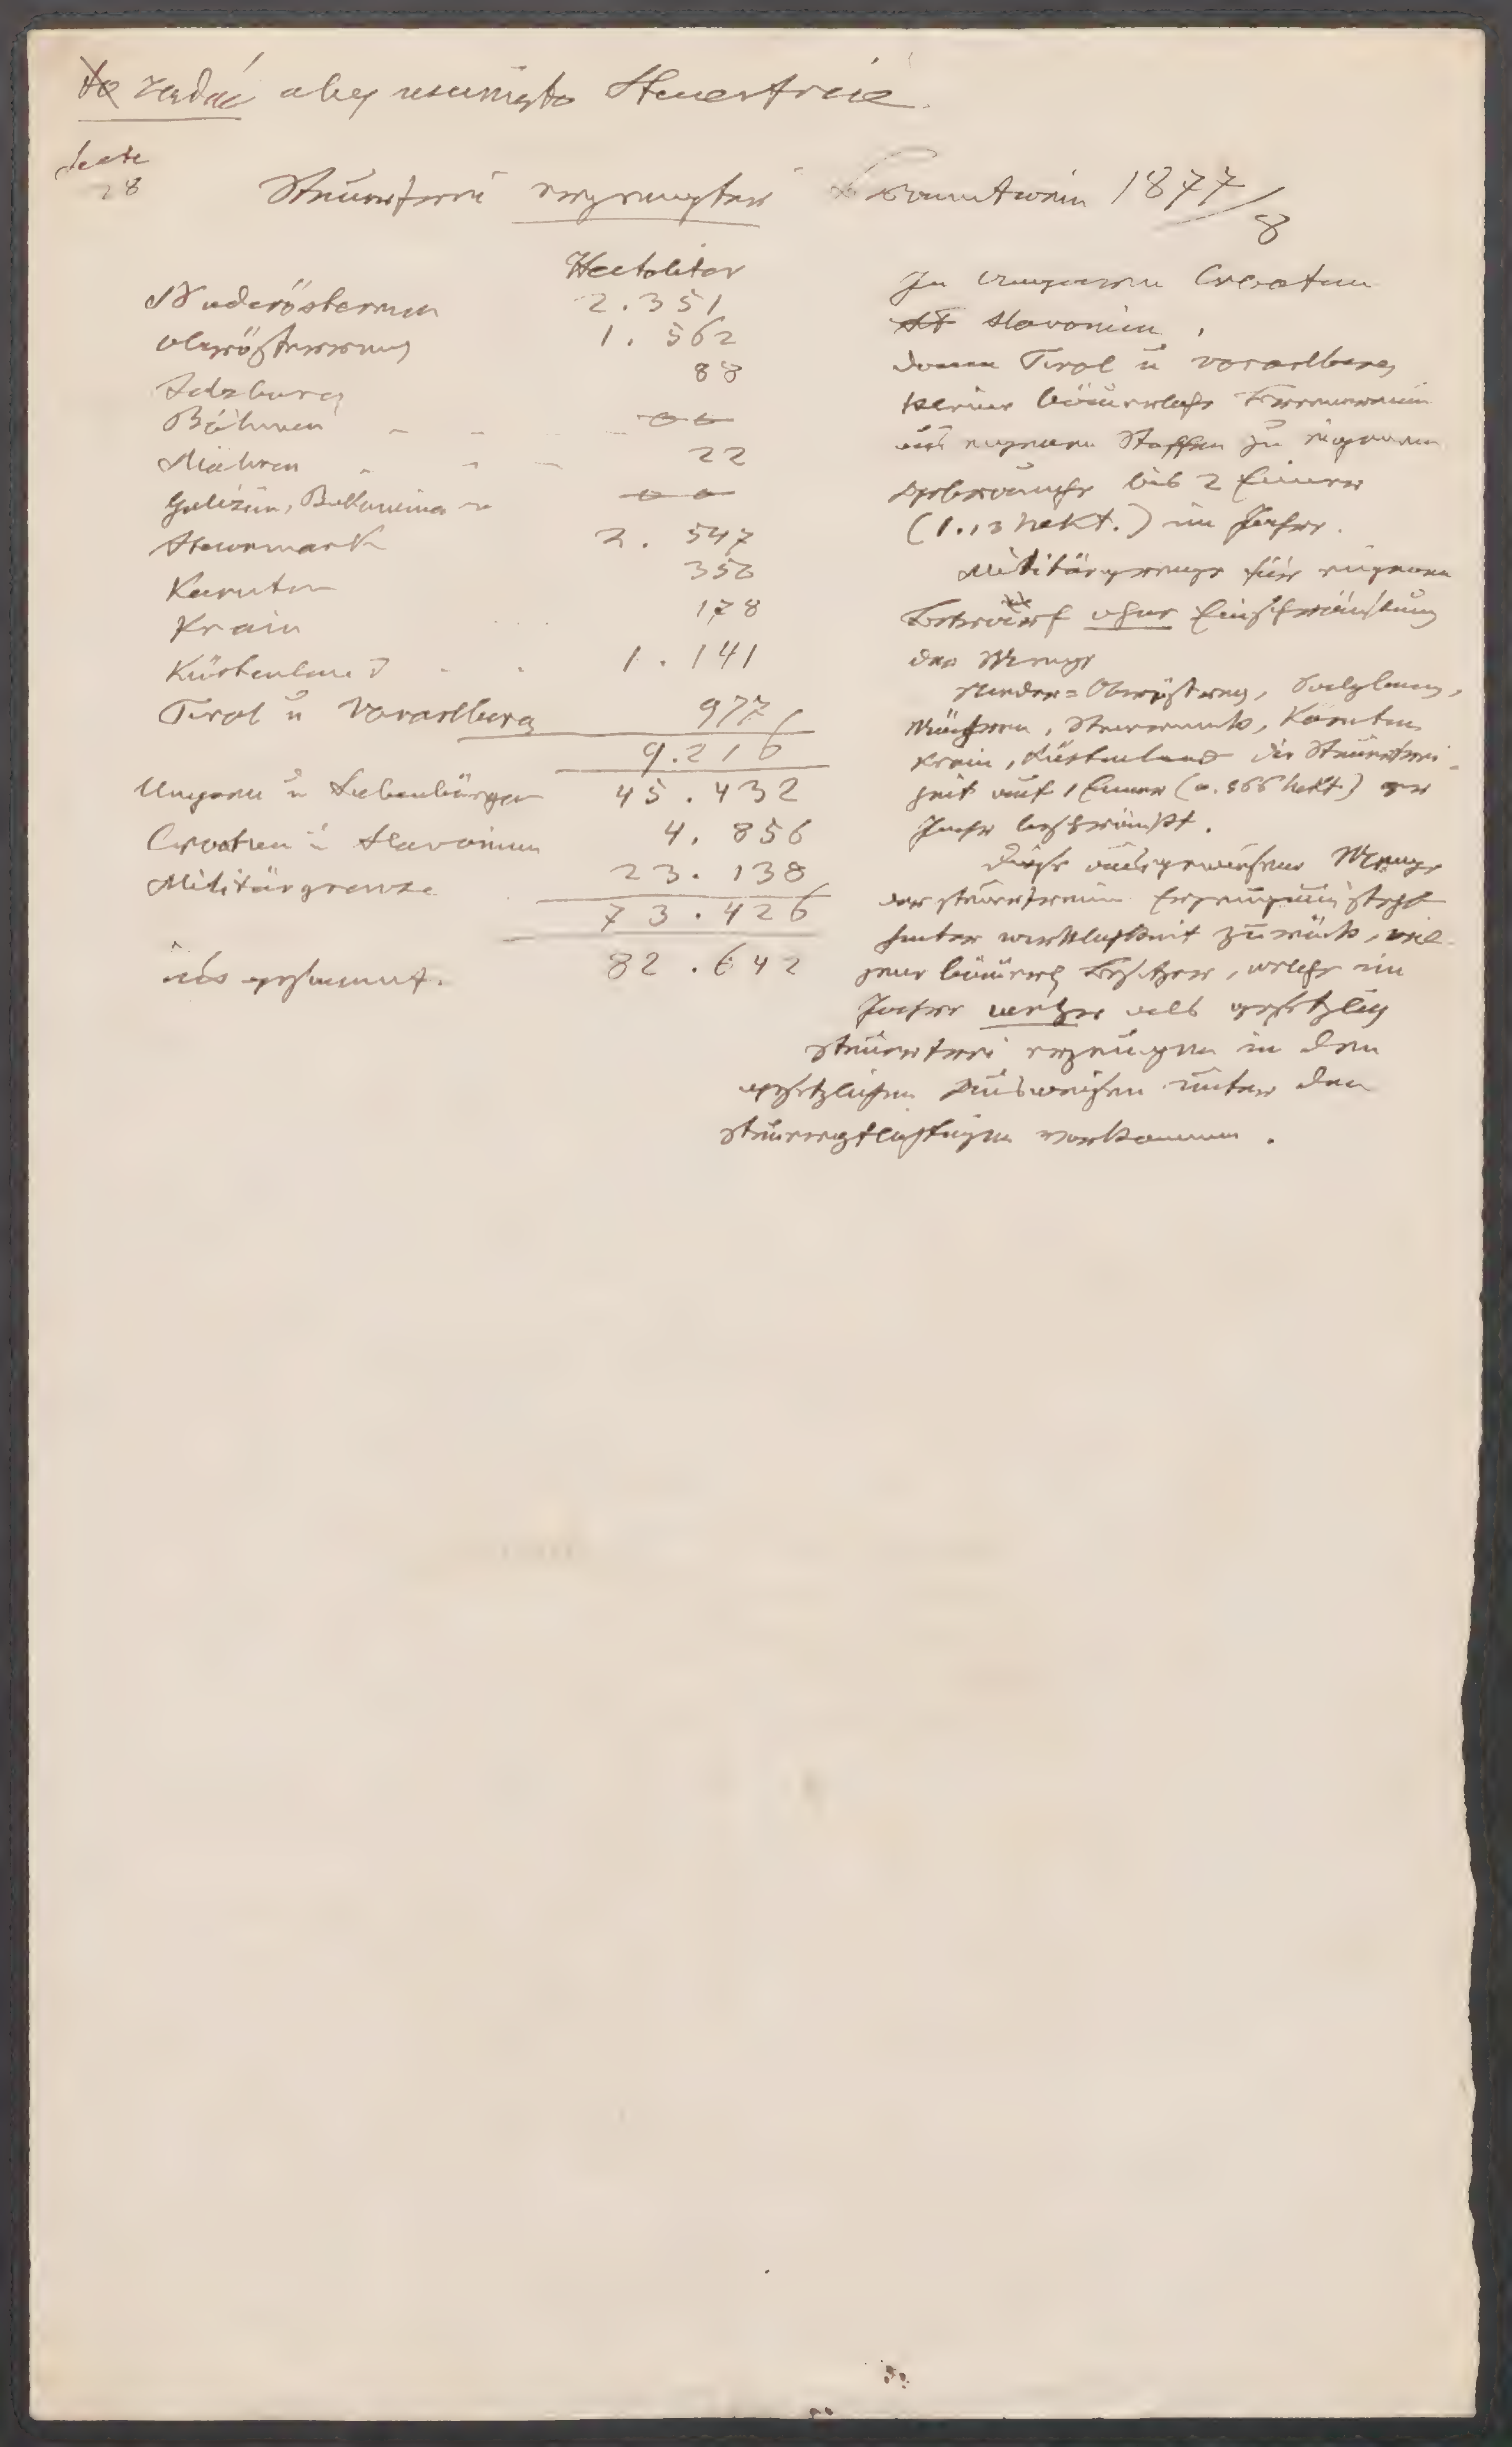 Steuerfrei erzeugter Branntwein 1877/8
Hectoliter
Niederösterreich 2.351
Oberösterreich 1.562
Salzburg 88
Böhmen - - - o o
Mähren - - - 22
Galizien, Bukowina - o o
Steiermark 2.547
Kärnten 350
Krain 178
Küstenland - - 1.141
Tirol u Vorarlberg 977
9.216
Ungarn u Siebenbürgen 45.432
Croatien u Slavonien 4.856
Militärgrenze 23.138
73.426
insgesammt. 82.642
In Ungarn Croatien
Slavonien,
dann Tirol u Vorarlberg
keiner bäuerliche Brennerein
aus eigenen Stoffen zu eigenem
Gebrauche bis 2 Eimer
(1.13 hekt.) im Jahre.
Militärgrenze für eigenen
Bedarf ohne Einschränkung
der Menge
Nieder=Oberösterreich, Salzburg,
Mähren, Steiermark, Kärnten
Krain, Küstenland die Steuerfrei-
heit auf 1 Eimer (0.566 hekt) per
Jahr beschränkt.
Diese ausgewiesene Menge
der steuerfreien Erzeugung steht
hinter Wirklichkeit zurück, weil
jene bäuerl Besitzer, welche im
Jahre mehr als gesetzlich
steuerfrei erzeugen in den
gesetzlichen Ausweisen unter den
steuerpflichtigen vorkommen.